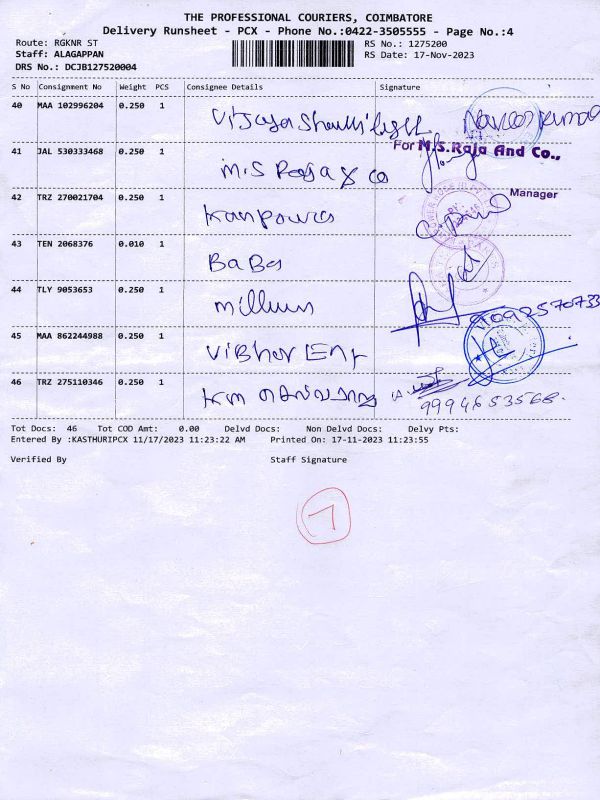 THE PROFESSIONAL COURIERS, COIMBATORE
Delivery Runsheet - PCX - Phone No.:0422-3505555 - Page No.:4
Route: RGKNR ST
RS No.: 1275200
Staff: ALAGAPPAN
RS Date: 17-Nov-2023
DRS No.: DCJB127520004
S No Consignment No Weight PCS Consignee Details Signature
40 MAA 102996204 0.250 1 Vijaya
41 JAL 530333468 0.250 1 M.S Raja & co For M.S.Raja And Co.,
Manager
42 TRZ 270021704 0.250 1
43 TEN 2068376 0.010 1 BaBa
44 TLY 9053653 0.250 1 9092570733
45 MAA 862244988 0.250 1 VIBhor Ent
46 TRZ 275110346 0.250 1 KM 9994653568.
Tot Docs: 46 Tot COD Amt: 0.00 Delvd Docs: Non Delvd Docs: Delvy Pts:
Entered By :KASTHURIPCX 11/17/2023 11:23:22 AM Printed On: 17-11-2023 11:23:55
Verified By Staff Signature
7